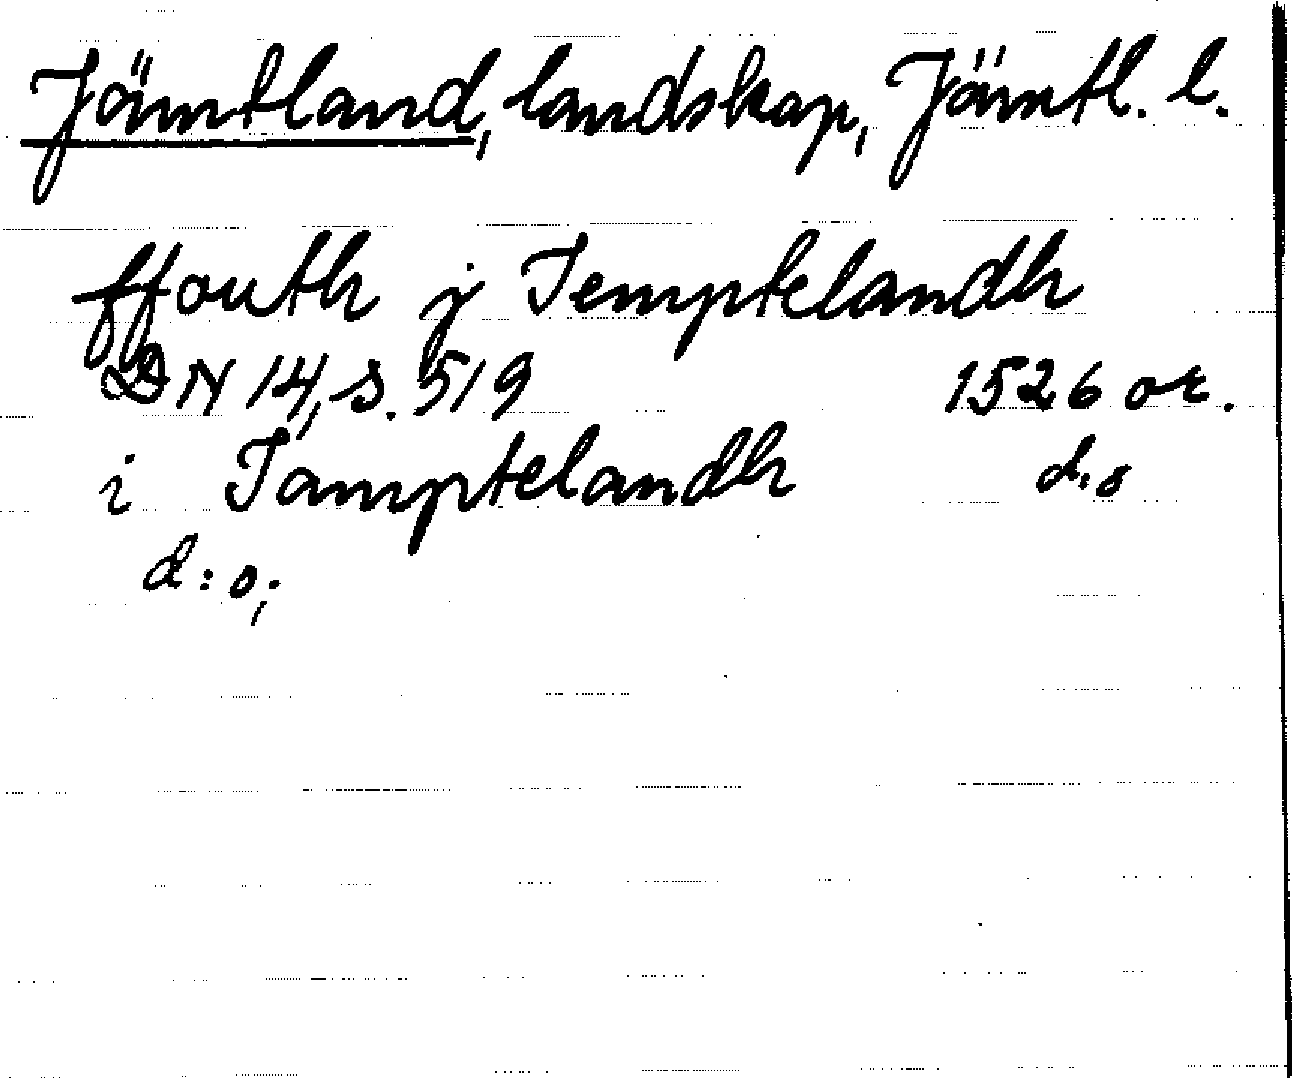 Jämtland, landskap, Jämtl. l.
ffouth j Iemptelandh
DN 14, s. 519 1526 or.
i Iamptelandh d:o
d:o;